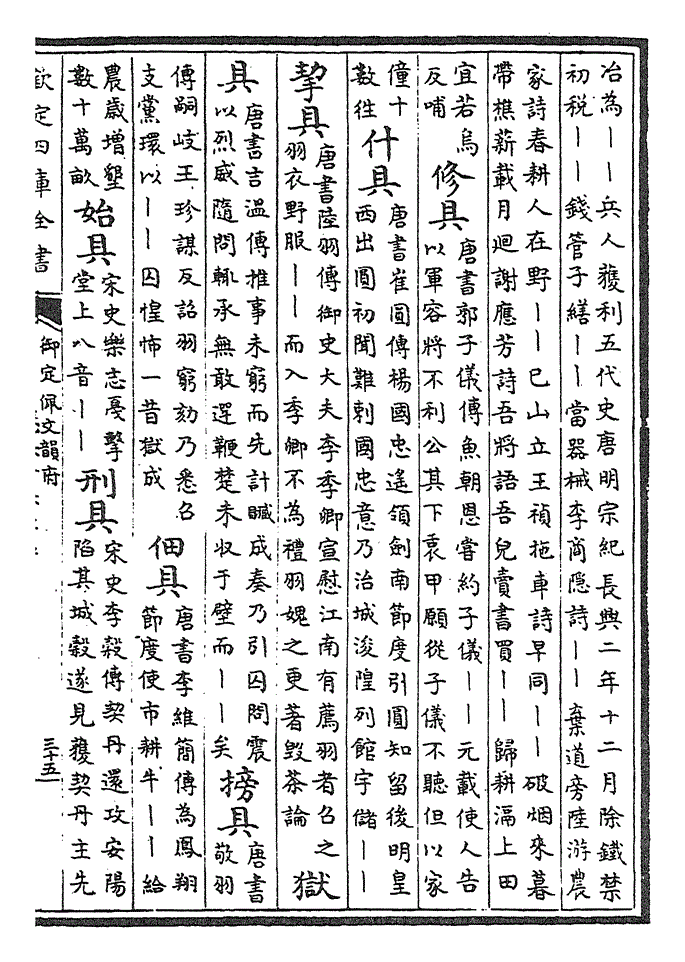 冶為――兵人獲利五代史唐明宗紀長興二年十二月除鐵禁
初税――錢管子繕――當器械李商隱詩――棄道旁陸游農
家詩春耕人在野――已山立王禎拖車詩早同――破烟來暮
帶樵薪載月迴謝應芳詩吾將語吾兒賣書買――歸耕滆上田
宜若烏
反哺
修具
唐書郭子儀傳魚朝恩嘗約子儀――元載使人告
以軍容將不利公其下衷甲願從子儀不聽但以家
僮十
數徃
什具
唐書崔圓傳楊國忠遙領劍南節度引圓知留後明皇
西出圓初聞難刺國忠意乃治城浚隍列館宇儲――
挈具
唐書陸羽傳御史大夫李季卿宣慰江南有薦羽者召之
羽衣野服――而入季卿不為禮羽媿之更著毁茶論
獄
具
唐書吉溫傳推事未窮而先計贓成奏乃引囚問震
以烈威隨問輒承無敢迕鞭楚未収于壁而――矣
搒具
唐書
敬羽
傳嗣岐王珍謀反詔羽窮劾乃悉召
支黨環以――囚惶怖一昔獄成
佃具
唐書李維簡傳為鳳翔
節度使市耕牛――給
農歲增墾
數十萬畝
始具
宋史樂志戞擊
堂上八音――
刑具
宋史李穀傳契丹還攻安陽
陷其城穀遂見獲契丹主先
欽定四庫全書
御定佩文韻府
三十五